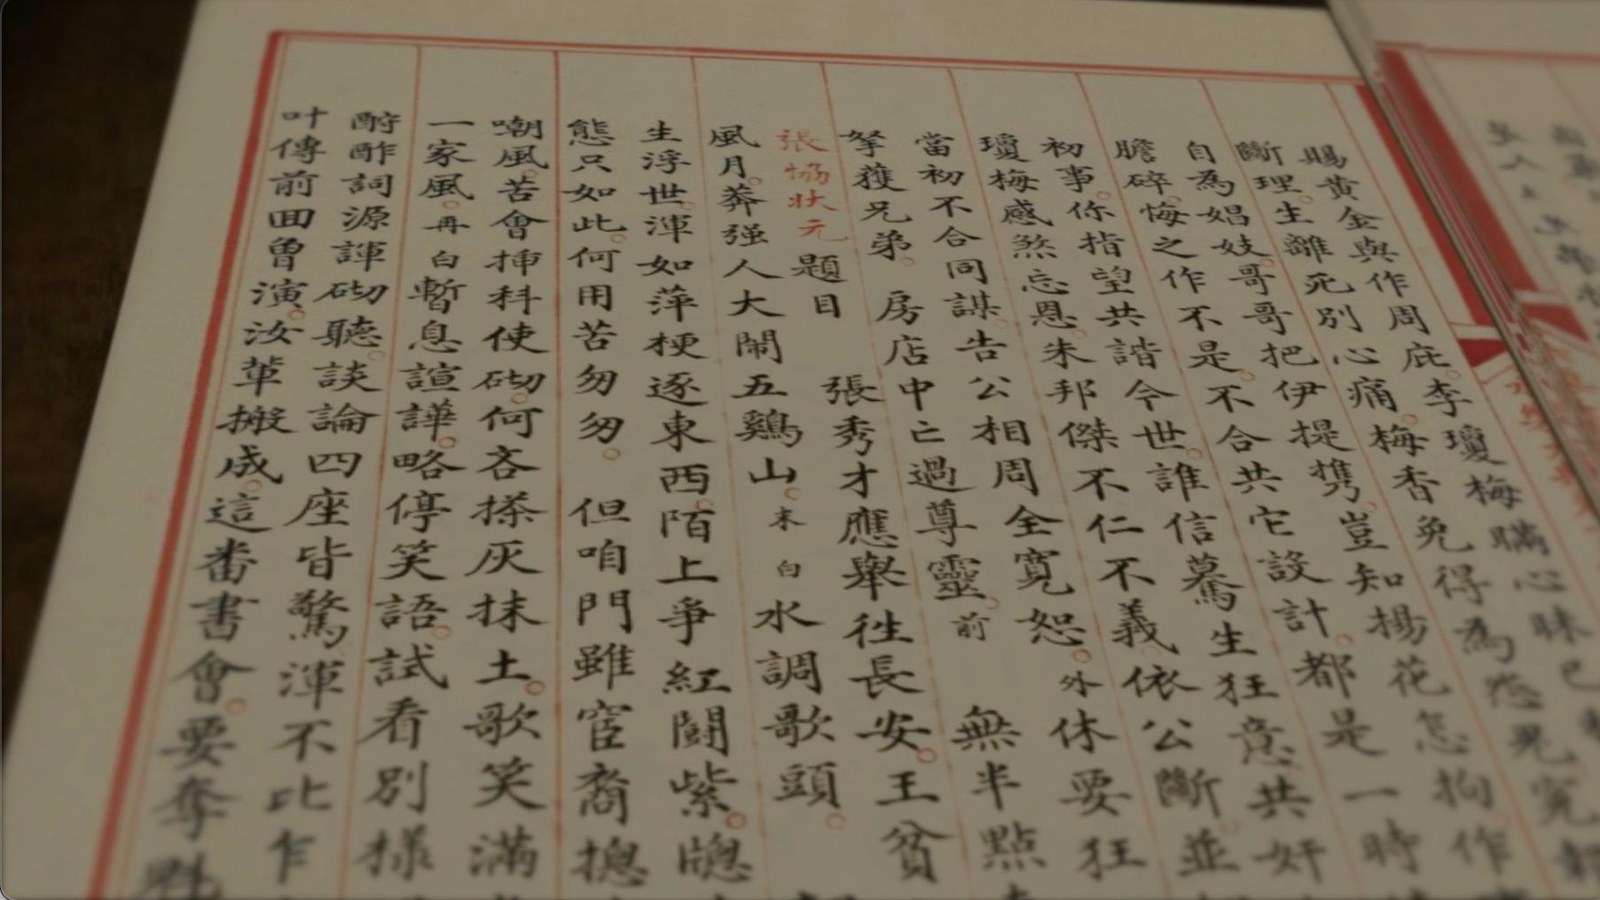 賜黄金與作周庇。李瓊梅瞞心昧已
斷理。生離死別心痛。梅香免得為怨鬼冤報
自為娼妓。哥哥把伊提携。豈知揚花怎拘作
膽碎。悔之作不是。不合共它設計。都是一時
初事。你指望共諧今世。誰信驀生狂意。共奸
瓊梅感煞忘恩。朱邦傑不仁不義。依公斷。並
當初不合同謀。告公相周全寬恕。外休要狂
拏獲兄弟。 房店中亡過尊靈。前 無半點
張協狀元題目 張秀才應舉往長安。王貧
風月。莽强人大鬧五鷄山。末白水調歌頭。
生浮世。渾如萍梗逐東西。陌上爭紅鬪紫。牕
態只如此。何用苦匆匆。 但咱門雖宦裔摠
嘲風。苦會揷科使砌。何吝搽灰抹土。歌笑滿
一家風。再白暫息諠譁。略停笑語。試看別樣
酧酢詞源諢砌聽。談論四座皆驚。渾不比乍
叶傳前回曾演。汝輩搬成。這番書會。要奪魁